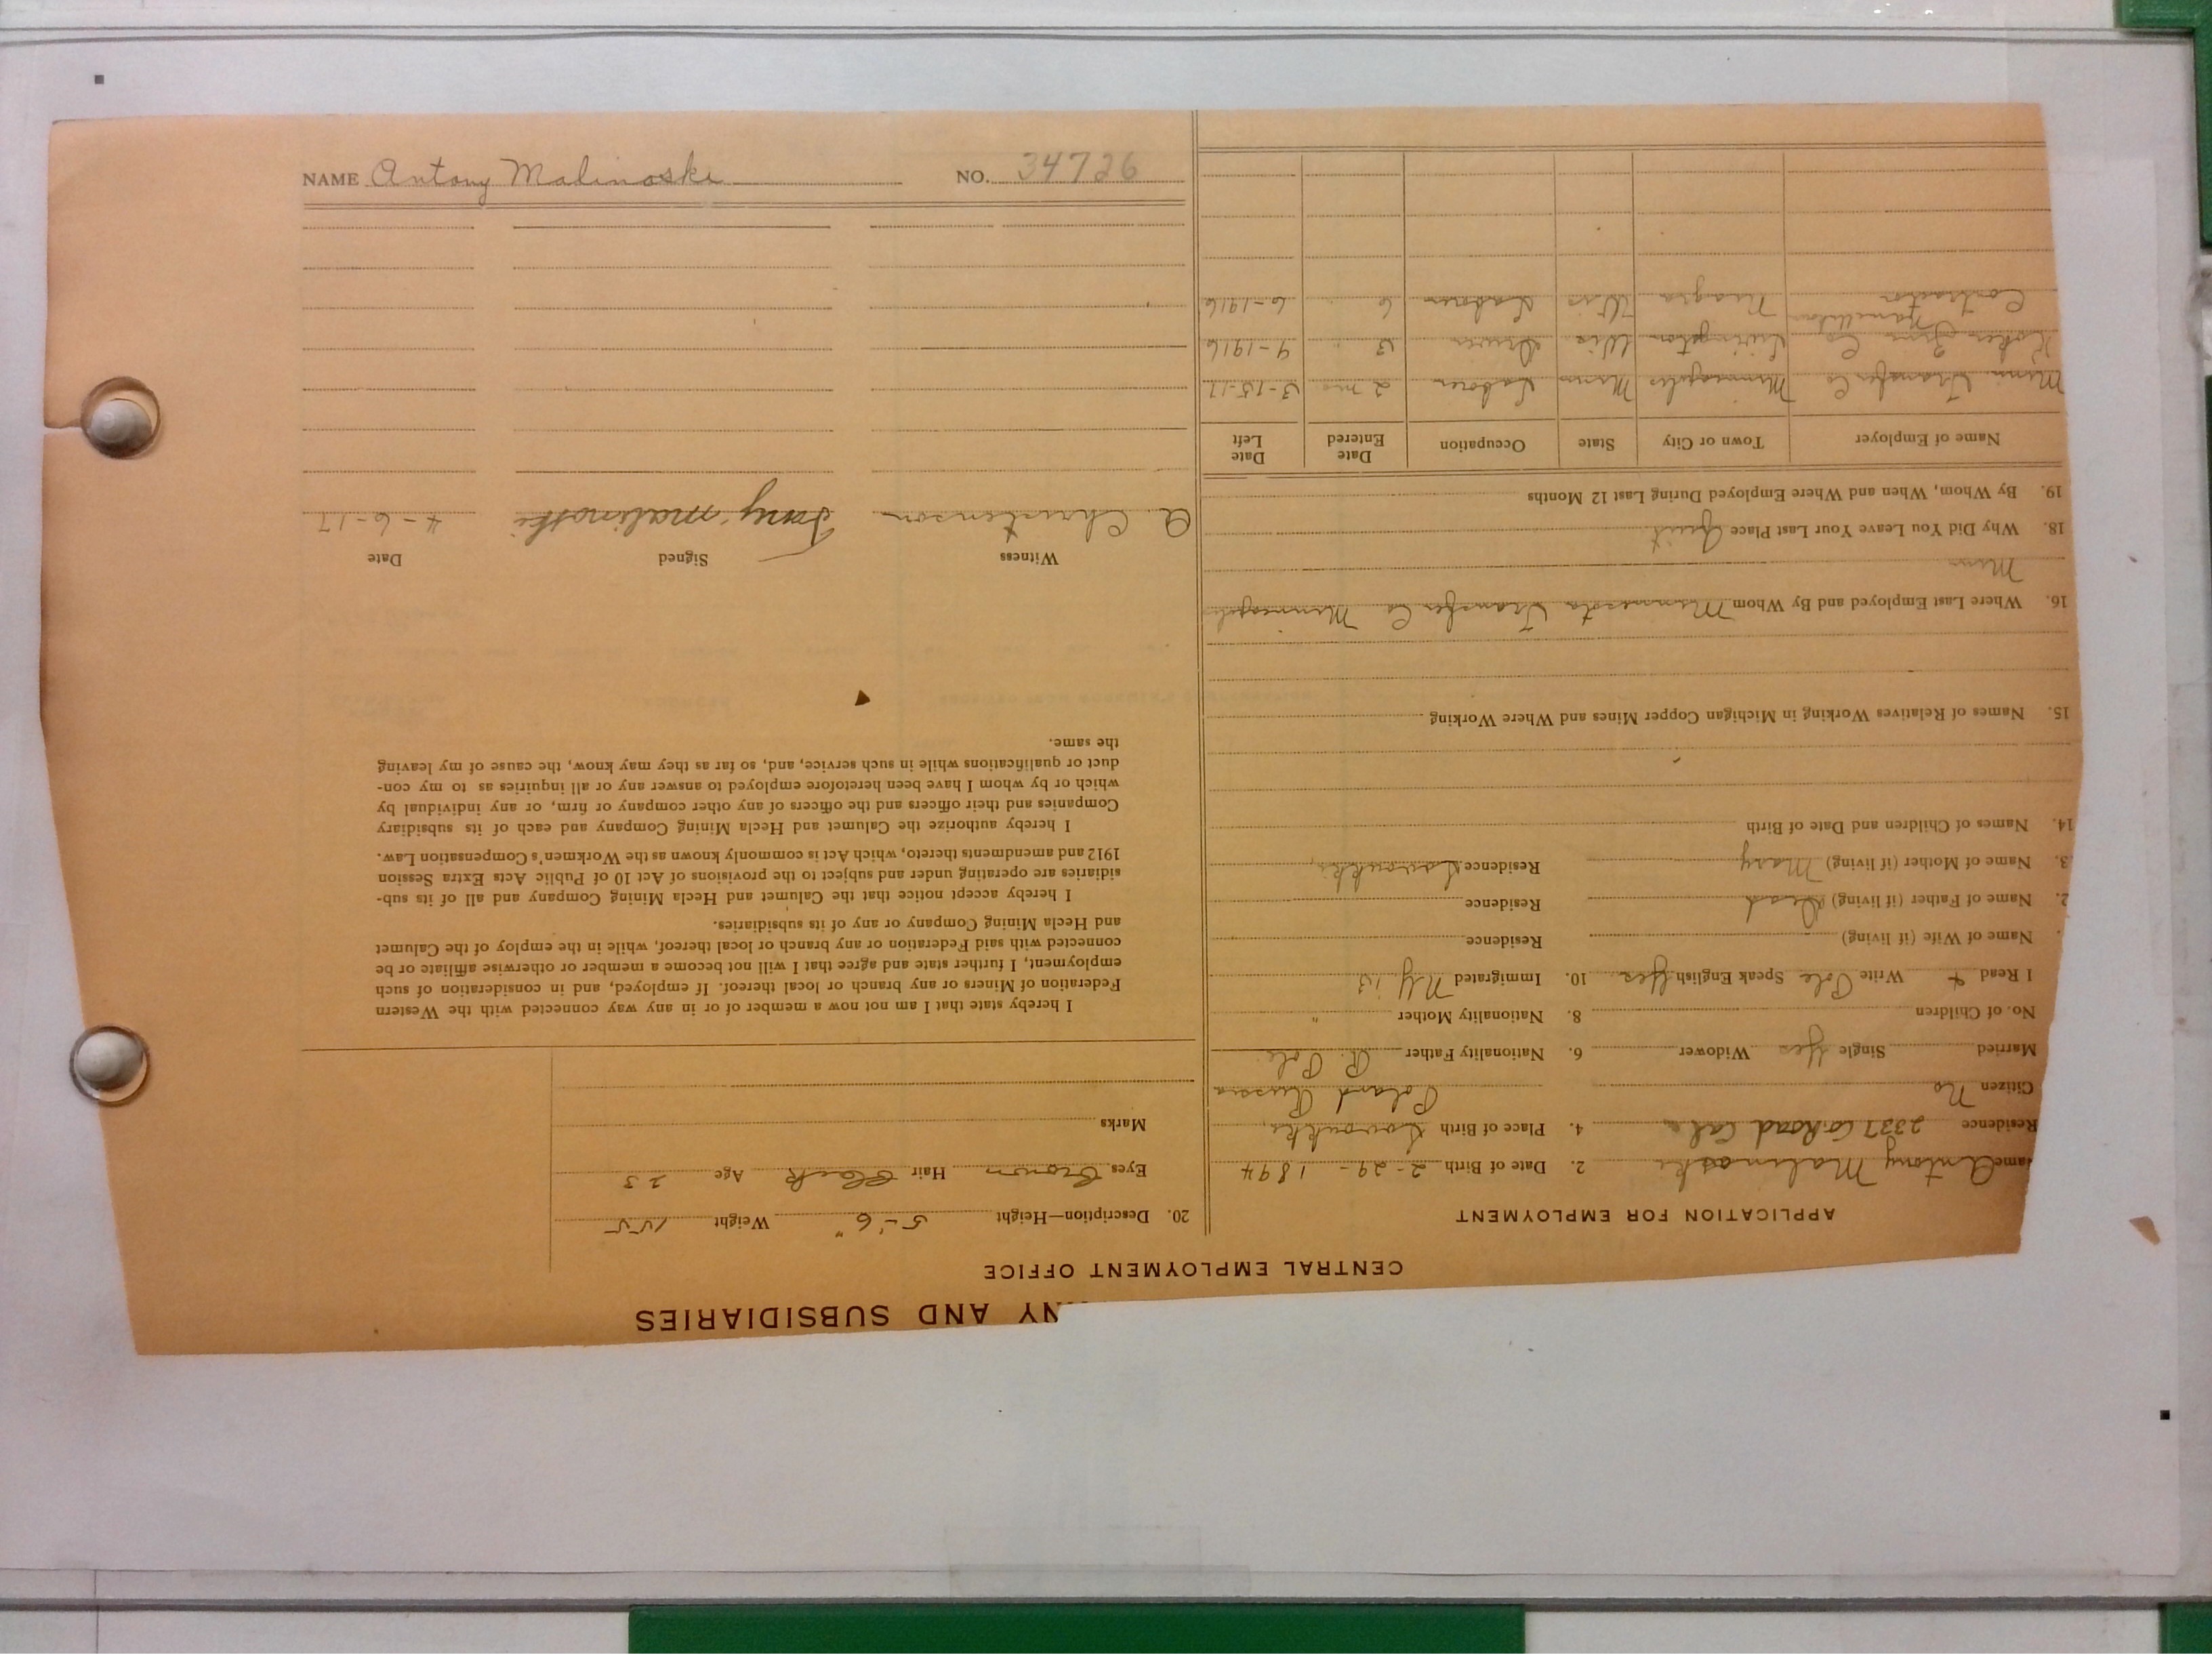 NAME Antony Malinoske NO. 34726
NY AND SUBSIDIARIES
CENTRAL EMPLOYMENT OFFICE
APPLICATION FOR EMPLOYMENT
ame Antony Malinoske 2. Date of Birth 2-29-1894
Residence 2337 Co. Road Cal 4. Place of Birth
Citizen No Poland
Married Single Yes Widower 6. Nationality Father R. Pole
No. of Children 8. Nationality Mother "
I Read & Write Pole Speak English Yes 10. Immigrated N.Y. 13
Name of Wife (if living) Residence
2. Name of Father (if living) Dead Residence
3. Name of Mother (if living) Mary Residence
14. Names of Children and Date of Birth
15. Names of Relatives Working in Michigan Copper Mines and Where Working
16. Where Last Employed and By Whom Minnesota Transfer Co Minneapolis
Minn
18. Why Did You Leave Your Last Place Quit
19. By Whom, When and Where Employed During Last 12 Months
Name of Employer Town or City State Occupation Date Entered Date Left
Minn. Transfer Co Minneapolis Minn Laborer 2 mo 3-15-17
Livington Wis 3 " 9-1916
Contractor Niagra Wis Laborer 6 " 6-1916
20. Description—Height 5-'6" Weight 155
Eyes Brown Hair Black Age 23
Marks
I hereby state that I am not now a member of or in any way connected with the Western
Federation of Miners or any branch or local thereof. If employed, and in consideration of such
employment, I further state and agree that I will not become a member or otherwise affiliate or be
connected with said Federation or any branch or local thereof, while in the employ of the Calumet
and Hecla Mining Company or any of its subsidiaries.
I hereby accept notice that the Calumet and Hecla Mining Company and all of its sub-
sidiaries are operating under and subject to the provisions of Act 10 of Public Acts Extra Session
1912 and amendments thereto, which Act is commonly known as the Workmen's Compensation Law.
I hereby authorize the Calumet and Hecla Mining Company and each of its subsidiary
Companies and their officers and the officers of any other company or firm, or any individual by
which or by whom I have been heretofore employed to answer any or all inquiries as to my con-
duct or qualifications while in such service, and, so far as they may know, the cause of my leaving
the same.
Witness Signed Date
A. Christenson Tony malinoski 4-6-17